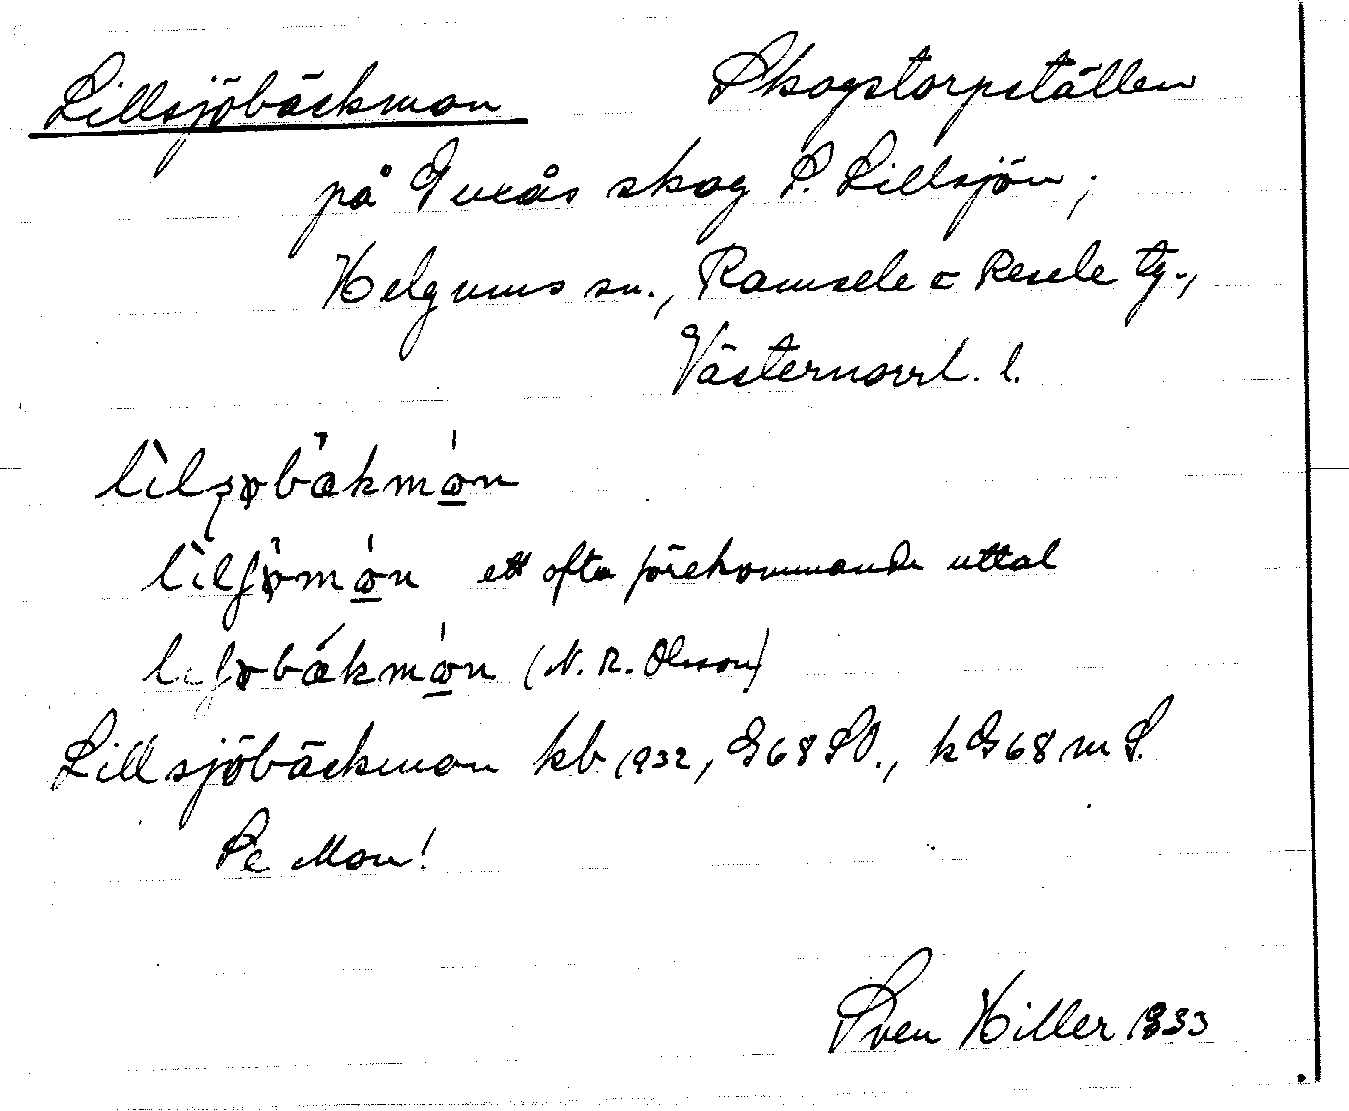 Lillsjöbäckmon Skogstorpställen
på Guxås skog S. Lillsjön;
Helgums sn., Ramsele o Resele tg.,
Västernorrl. l.
ett ofta förekommande uttal
(N. R. Olsson)
Lillsjöbäckmon kb 1932, G68SO., kG68 m S.
Se Mon!
Sven Hiller 1933